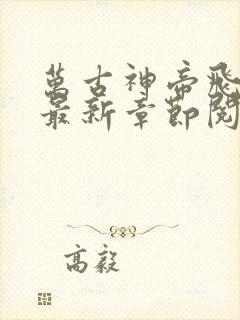 萬古神帝飛
最新章節閱
高毅